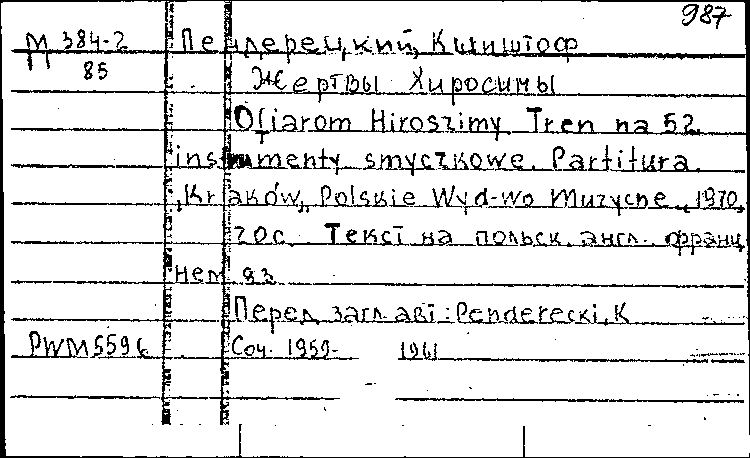 987
М 384-2 Пендерецкий, Кшиштоф
85 Жертвы Хиросимы
Ofiarom Hiroszimy. Tren na 52
instrumenty smyczkowe. Partitura.
Kraków, Polskie Wyd-wo Muzyczne, 1970,
20с. Текст на польск. англ. франц.
нем. яз.
Перед загл. авт.: Penderecki, K
PWM 5596 Соч. 1959- 1961